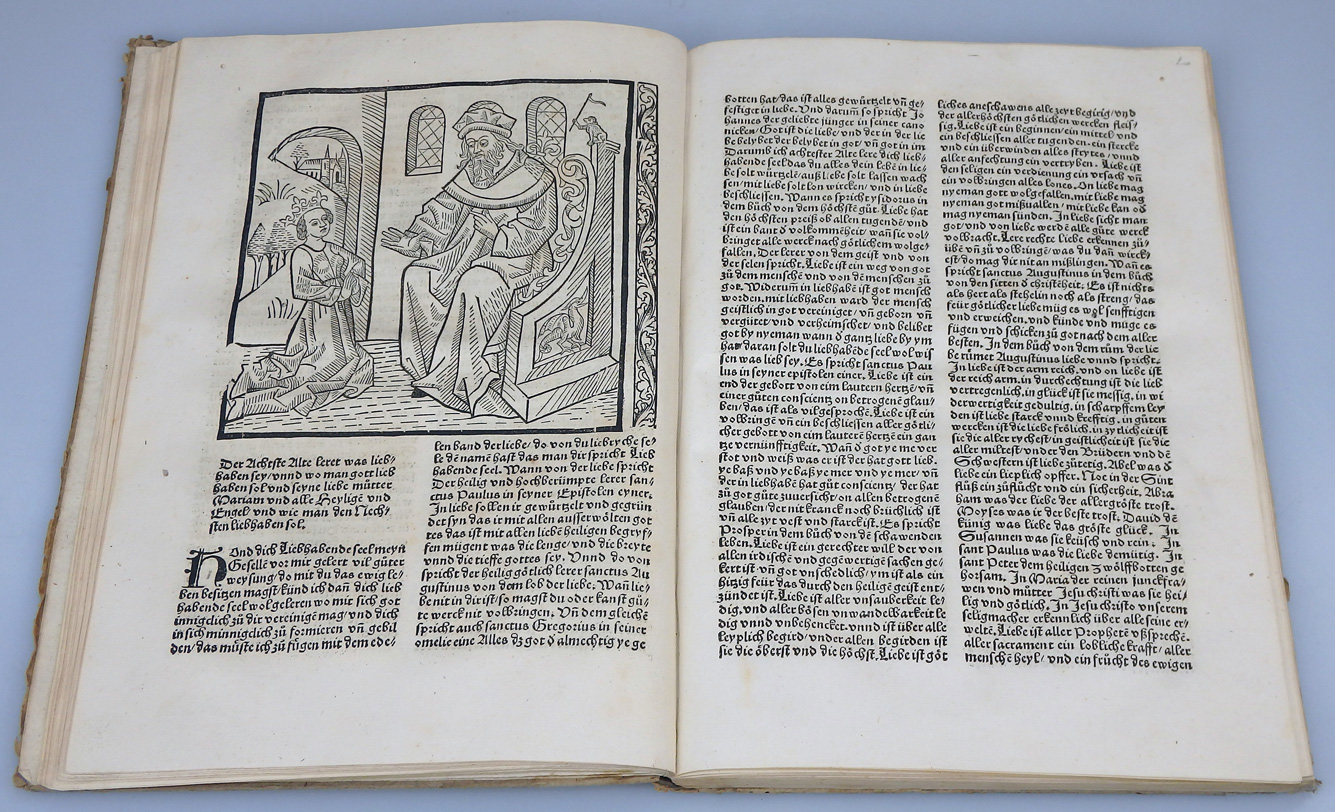 Der Achteste Alte leret was lieb⸗
haben sey/vnnd wo man gott lieb
haben sol vnd seyne liebe mütter
Mariam vnd alle Heylige vnd
Engel vnd wie man den Nech⸗
sten liebhaben sol.
Ond dich Liebhabende seel meyn
Geselle vor mir gelert vil güter
weysung/do mit du das ewig le⸗
ben besitzen magst/künd ich dañ dich lieb
habende seel wol geleren wo mit sich got
innigclich zů dir vereinigē mag/vnd dich
in sich minnigclich zů formieren vñ gebil
den/das můste ich zů fügen mit dem ede⸗
len band der liebe/do von du liebryche se⸗
le dē namē hast das man dir spricht Lieb
habende seel. Wann von der liebe spricht
Der heilig vnd hochberümpte lerer san⸗
ctus Paulus in seyner Epistolen eyner.
In liebe sollen ir gewürtzelt vnd gegrün
det syn das ir mit allen ausserwölten got
tes das ist mit allen liebē heiligen begryf⸗
fen mügent was die lenge/vnd die breyte
vnnd die tieffe gottes sey. Vnnd do von
spricht der heilig götlich lerer sanctus Au
gustinus von dem lob der liebe. Wañ lie⸗
be nit in dir ist/so magst du oder kanst gů⸗
te werck nit volbringen. Vñ dem gleichē
spricht auch sanctus Gregorius in seiner
omelie eine Alles dz got ð almechtig ye ge
botten hat/das ist alles gewürtzelt vñ ge⸗
festiget in liebe. Vnd darum̄ so spricht Jo
hannes der geliebte jünger in seiner cano
nicken/Got ist die liebe/vnd der in der lie
be belybet der belybet in got/vñ got in im
Darumb ich achtester Alte lere dich lieb⸗
habende seel das du alles dein lebē in lie⸗
be solt würtzelē/auß liebe solt lassen wach
sen/mit liebe solt lon wircken/vnd in liebe
beschliessen. Wann es spricht ysidorus in
dem bůch von dem höchstē gůt. Liebe hat
den höchsten preiß ob allen tugendē/vnd
ist ein band ð volkommēheit/wañ sie vol⸗
bringet alle werck nach götlichem wolge⸗
fallen. Der lerer von dem geist vnd von
der selen spricht. Liebe ist ein weg von got
zů dem menschē vnd von dē menschen zů
got. Widerum̄ in liebhabē ist got mensch
worden. mit liebhaben ward der mensch
geistlich in got vereiniget/vñ geborn vñ
vergütet/vnd verheimschet/vnd belibet
got by nyeman wann ð gantz liebe by ym
hat/daran solt du liebhabēde seel wol wis
sen was lieb sey. Es spricht sanctus Pau
lus in seyner epistolen einer. Liebe ist ein
end der gebott von eim lautern hertzē/vñ
einer gůten conscientz on betrogenē glau⸗
ben/das ist als vil gesprochē. Liebe ist ein
volbringē vñ ein beschliessen aller götli⸗
cher gebott von eim lauterē hertzē ein gan
tze vernünfftigkeit. Wañ ð got ye me ver
stot vnd weiß was er ist der hat gott lieb.
ye baß vnd ye baß ye mer vnd ye mer/vñ
der in liebhabē hat gůt conscientz/der hat
zů got gůte zůuersicht/on allen betrogenē
glauben/der nit kranck noch brüchlich ist
vñ alle zyt vest vnd starck ist. Es spricht
Prosper in dem bůch von dē schawenden
leben. Liebe ist ein gerechter will der von
allen irdischē vnd gegēwertigē sachen ge⸗
kert ist vñ got vnschedlich/ym ist als ein
hitzig feür das durch den heiligē geist ent⸗
zündet ist. Liebe ist aller vnsauberkeit le⸗
dig. vnd aller bösen vnwandelbarkeit le
dig vnnd vnbehencket. vnd ist über alle
leyplich begird/vnder allen begirden ist
sie die öberst vnd die höchst. Liebe ist göt
liches aneschawens alle zeyt begirig/vnd
der allerhöchsten götlichen wercken fleis⸗
sig. Liebe ist ein beginnen/ein mittel/vnd
ein beschliessen aller tugenden. ein stercke
vnd ein überwinden alles strytes/vnnd
aller anfechtung ein vertryben. Liebe ist
den seligen ein verdienung ein vrsach vñ
ein volbringen alles lones. On liebe mag
nyeman gott wolgefallen. mit liebe mag
nyeman got mißuallen/mit liebe kan oð
mag nyeman sünden. In liebe sicht man
got/vnd von liebe werdē alle gůte werck
volbracht. Lere rechte liebe erkennen zů⸗
übē vñ zů volbringē/was du dañ wirck⸗
est/do mag dir nit an mißlingen. Wañ es
spricht sanctus Augustinus in dem bůch
von den sitten ð christēheit. Es ist nichts
als hert als stehelin noch als streng/das
feür götlicher liebe müg es wol senfftigen
vnd erweichen. vnd künde vnd müge es
fügen vnd schicken zů got nach dem aller
besten. In dem bůch von dem rům der lie
be růmet Augustinus liebe vnnd spricht.
In liebe ist der arm reich. vnd on liebe ist
der reich arm. in durchechtung ist die lieb
vertregenlich. in glück ist sie messig. in wi
derwertigkeit gedultig. in scharpffem ley
den ist liebe starck vnnd krefftig. in gůten
wercken ist die liebe frölich. in zytlicheit ist
sie die aller rychest/in geistlicheit ist sie die
aller milrest/vnd der den Brüdern vnd dē
Schwestern ist liebe zütetig. Abel was ð
liebe ein lieplich opffer. Noe in der Sint
flůß ein zůflucht vnd ein sicherheit. Abra
ham was der liebe der allergröste trost.
Moyses was ir der beste trost. Dauid dē
künig was liebe das gröste glück. In
Susannen was sie keüsch vnd rein. In
sant Paulus was die liebe demütig. In
sant Peter dem heiligen zwölffbotten ge
horsam. In Maria der reinen junckfra⸗
wen vnd mütter Jesu christi was sie hei⸗
lig vnd götlich. In Jesu christo vnserem
seligmacher erkennlich über alle seine er⸗
welte. Liebe ist aller Prophetē vßsprechē.
aller sacrament ein lobliche krafft/aller
menschē heyl/vnd ein frucht des ewigen